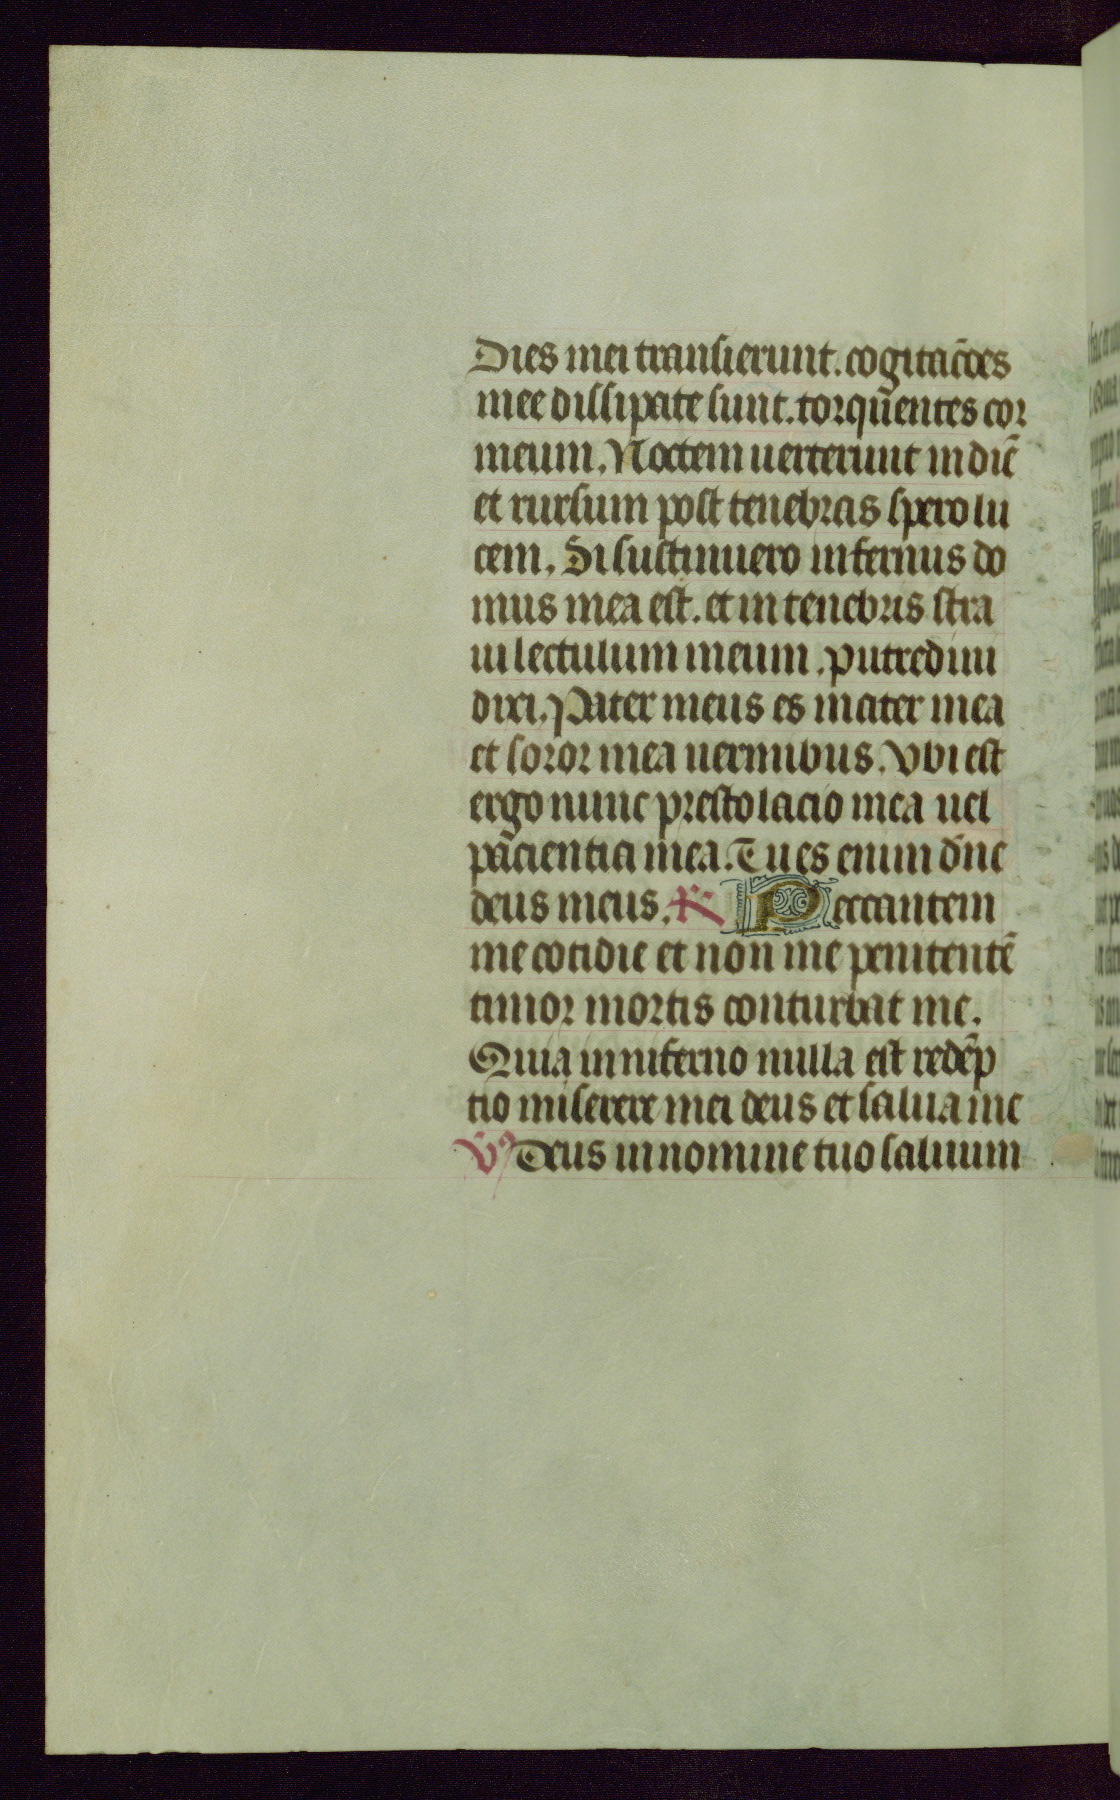 Dies mei transierunt. cogitac̄oes
mee dissipate sunt. torqūentes cor
meum. Noctem uerterunt in diē
et rursum post tenebras spero lu
cem. Si sustinuero infernus do
mus mea est. et in tenebris stra
ui lectulum meum. putredini
dixi. Pater meus es mater mea
et soror mea uermibus. Vbi est
ergo nunc prestolacio mea uel
pācientia mea. Tu es enim dn̄e
deus meus. R Peccantem
me cotidie et non me penitentē
timor mortis conturbat me.
Quia in inferno nulla est redēp
tio miserere mei deus et salua me
V Deus in nomine tuo saluum